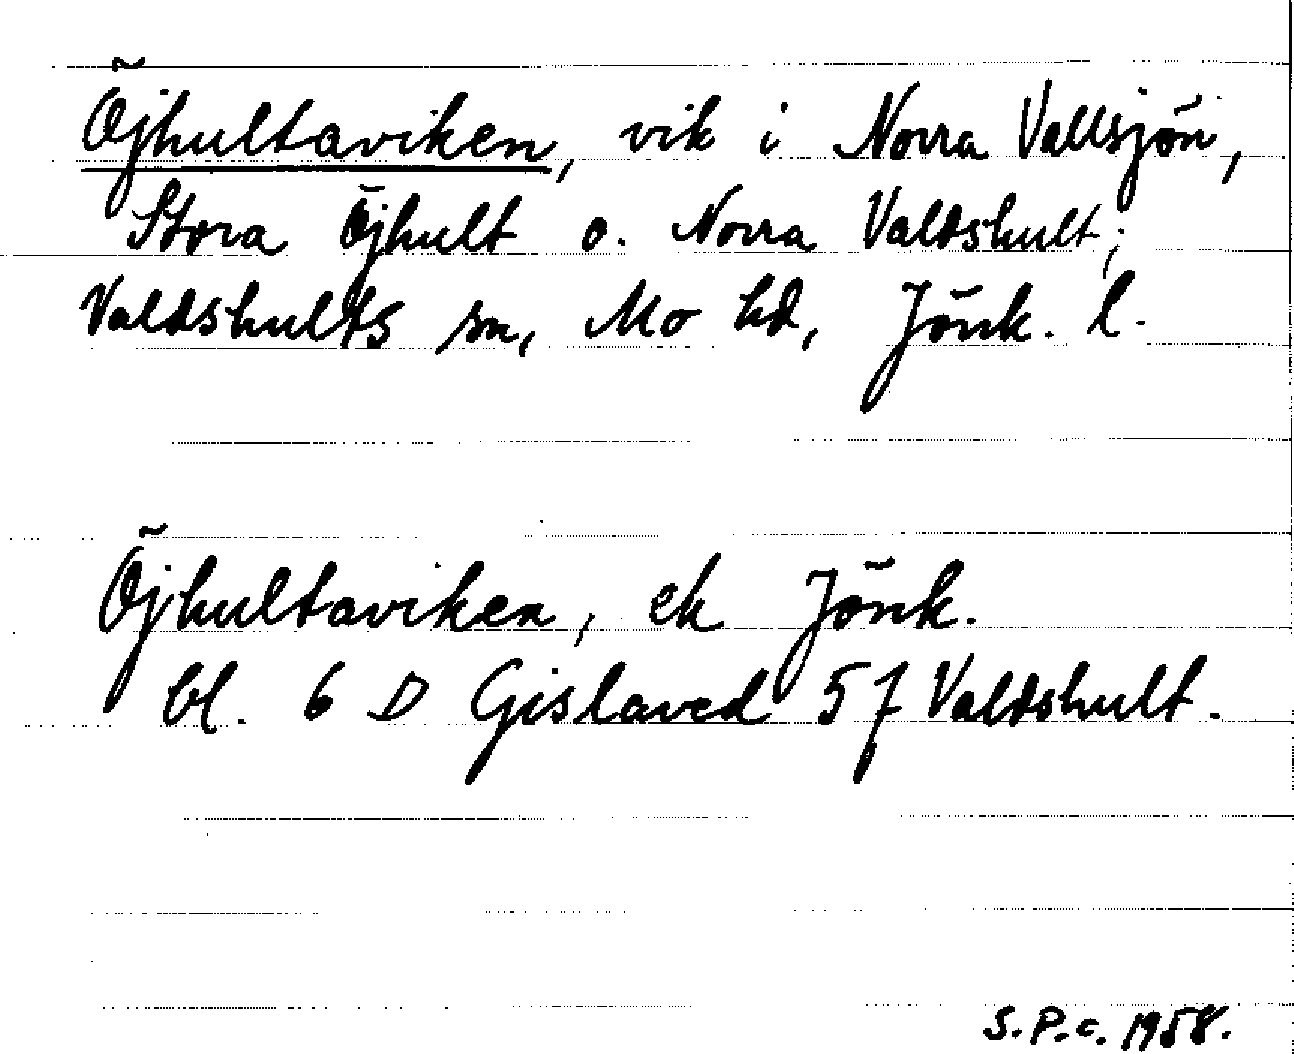 Öjhultaviken, vik i Norra Vallsjön,
Stora Öjhult o. Norra Valdshult;
Valdshults sn, Mo hd, Jönk. l.
Öjhultaviken, ek Jönk.
bl. 6 D Gislaved 5 f Valdshult.
S.P.c. 1958.